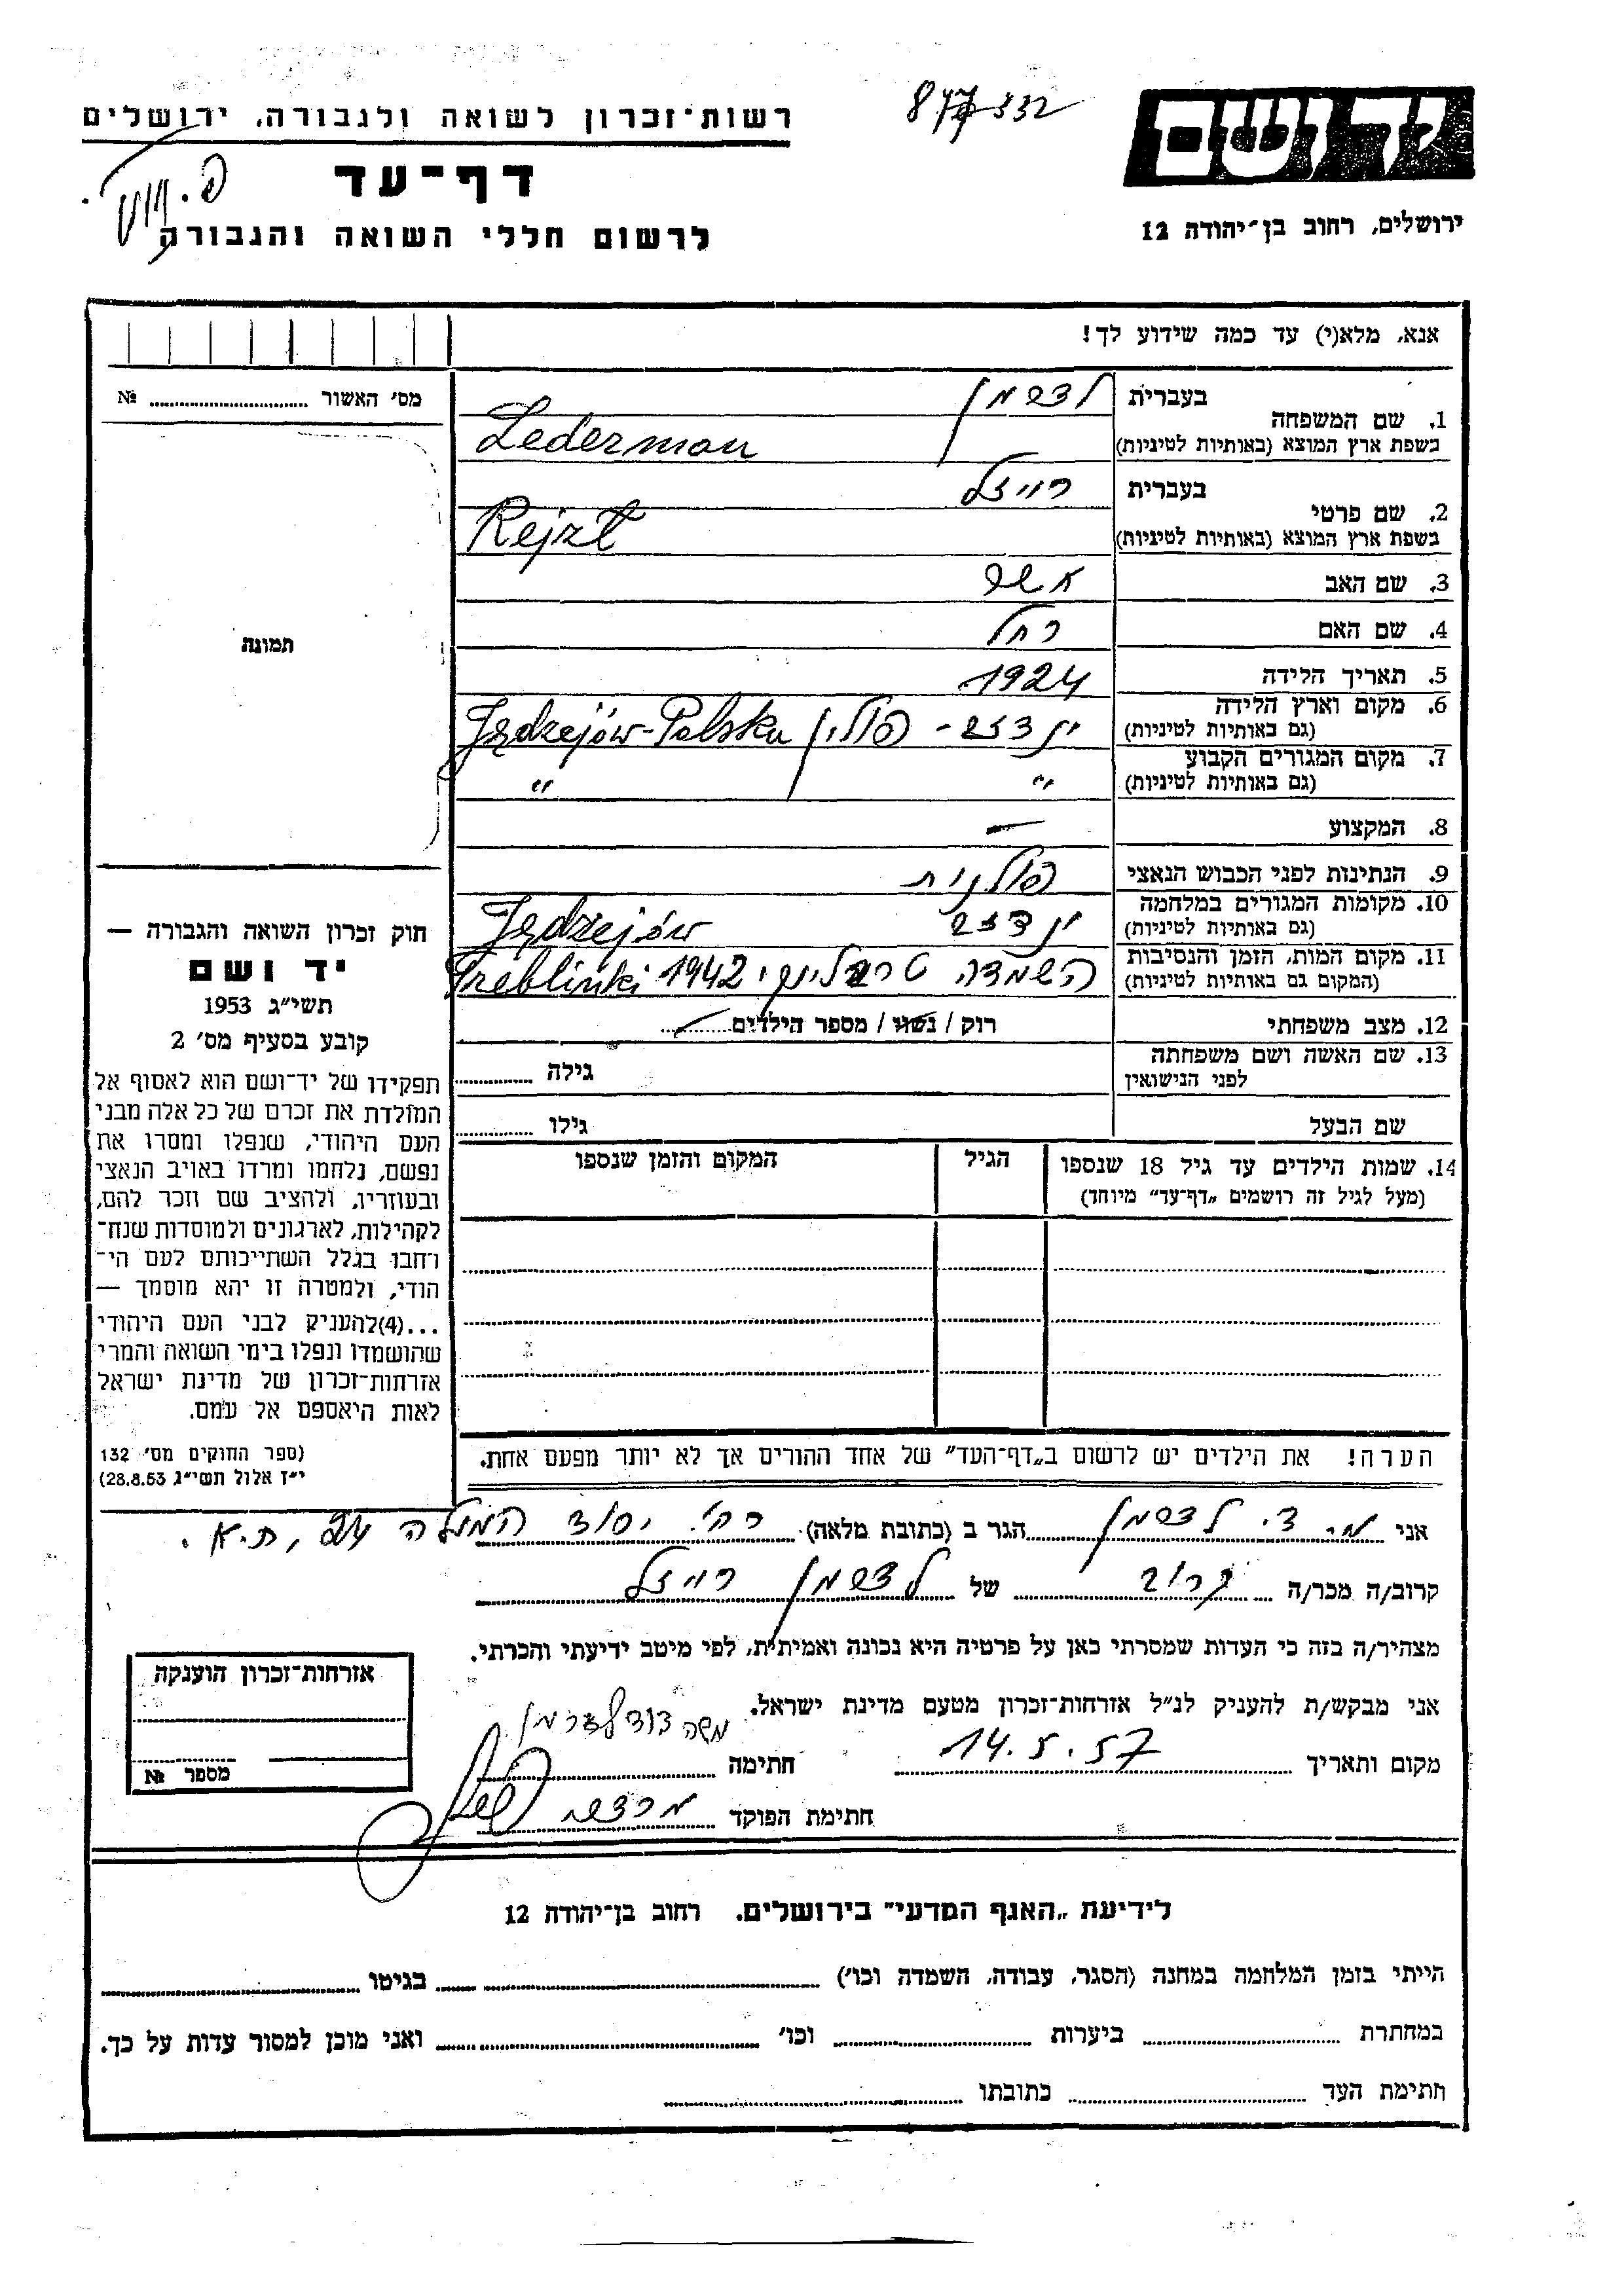 877332
יד ושם
רשות־זכרון לשואה ולגבורה, ירושלים
דף־עד
לרשום חללי השואה והגבורה
ירושלים, רחוב בן־יהודה 12
אנא, מלא(י) עד כמה שידוע לך!
מס׳ האשור № ........
תמונה
1. שם המשפחה
בעברית לדרמן
בשפת ארץ המוצא (באותיות לטיניות) Lederman
2. שם פרטי
בעברית רייזל
בשפת ארץ המוצא (באותיות לטיניות) Rejzl
3. שם האב אשר
4. שם האם רחל
5. תאריך הלידה 1924
6. מקום וארץ הלידה
(גם באותיות לטיניות) ינדזב - פולין Jędrzejów-Polska
7. מקום המגורים הקבוע
(גם באותיות לטיניות) " "
8. המקצוע —
9. הנתינות לפני הכבוש הנאצי פולנית
10. מקומות המגורים במלחמה
(גם באותיות לטיניות) ינדזב Jędrzejów
11. מקום המות, הזמן והנסיבות
(המקום גם באותיות לטיניות) השמדה טרבלינקי 1942 Treblinki
12. מצב משפחתי רוק / נשוי / מספר הילדים........
13. שם האשה ושם משפחתה
לפני הנישואין גילה ........
שם הבעל גילו ........
14. שמות הילדים עד גיל 18 שנספו הגיל המקום והזמן שנספו
(מעל לגיל זה רושמים „דף־עד" מיוחד)
הערה! את הילדים יש לרשום ב„דף־העד" של אחד ההורים אך לא יותר מפעם אחת.
חוק זכרון השואה והגבורה —
יד ושם
תשי״ג 1953
קובע בסעיף מס׳ 2
תפקידו של יד־ושם הוא לאסוף אל
המולדת את זכרם של כל אלה מבני
העם היהודי, שנפלו ומסרו את
נפשם, נלחמו ומרדו באויב הנאצי
ובעוזריו, ולהציב שם וזכר להם,
לקהילות, לארגונים ולמוסדות שנח־
רחבו בגלל השתייכותם לעם הי־
הודי, ולמטרה זו יהא מוסמך —
...(4)להעניק לבני העם היהודי
שהושמדו ונפלו בימי השואה והמרי
אזרחות־זכרון של מדינת ישראל
לאות היאספם אל עמם.
(ספר החוקים מס׳ 132
י״ז אלול תשי״ג 28.8.53)
אני מ. ד. לדרמן הגר ב (כתובת מלאה) רח׳ יסוד המעלה 24, ת.א.
קרוב/ה מכר/ה קרוב של לדרמן רייזל
מצהיר/ה בזה כי העדות שמסרתי כאן על פרטיה היא נכונה ואמיתית, לפי מיטב ידיעתי והכרתי.
אני מבקש/ת להעניק לנ״ל אזרחות־זכרון מטעם מדינת ישראל.
משה דוד לדרמן
מקום ותאריך 14.5.57 חתימה
חתימת הפוקד
אזרחות־זכרון הוענקה
מספר №
לידיעת „האגף המדעי" בירושלים. רחוב בן־יהודה 12
הייתי בזמן המלחמה במחנה (הסגר, עבודה, השמדה וכו׳) ........ בגיטו ........
במחתרת ........ ביערות ........ וכו׳ ........ ואני מוכן למסור עדות על כך.
חתימת העד ........ כתובתו ........